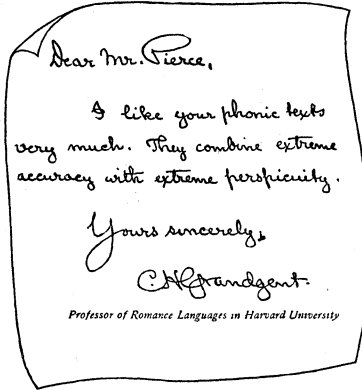 Dear Mr. Pierce,
I like your phonic texts
very much. They combine extreme
accuracy with extreme perspicuity.
Yours sincerely,
C H Grandgent.
Professor of Romance Languages in Harvard University